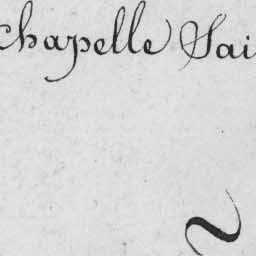 chapelle Sai